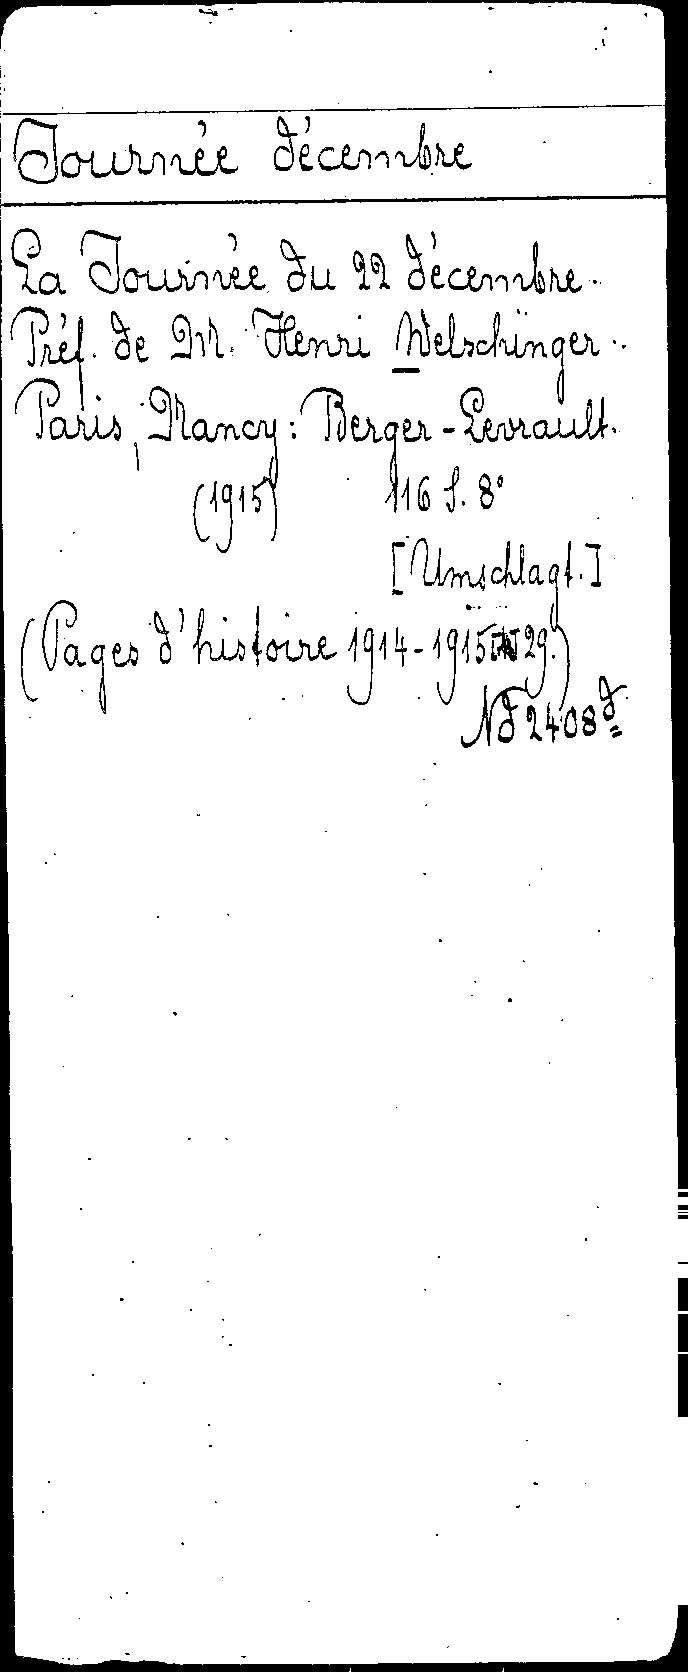 Journée décembre
La Journée du 22 décembre.
Préf. de M. Henri Welschinger.
Paris, Nancy: Berger-Levrault.
(1915) 116 S. 8°
[Umschlagt.]
(Pages d'histoire 1914-1915 29.)
Nd 2408d